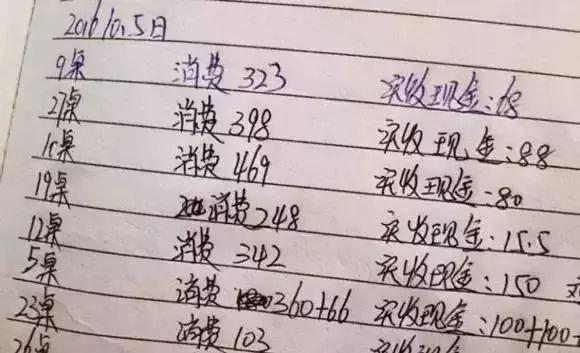 2016 10.5日
9桌 消费 323 实收现金:68
27桌 消费 398 实收现金:88
消费 469 实收现金:80
19桌 消费 248 实收现金:15.5
12桌 消费 342 实收现金:150
5桌 消费 360+66 实收现金:100+100+
23桌 消费 103
26桌